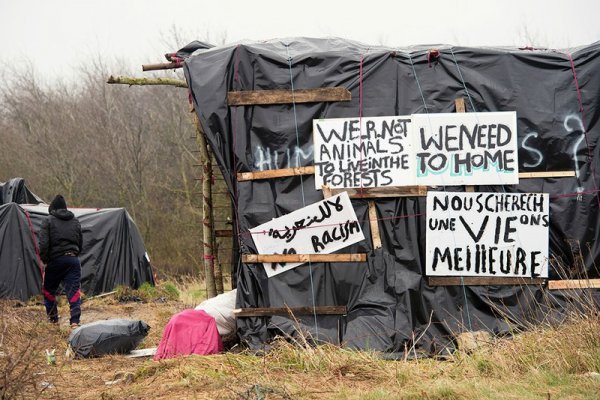 WE R NOT
ANIMALS
TO LIVE IN THE
FORESTS
WE NEED
TO HOME
S ?
NO RACISM
NOUS CHERECH
UNE VIE ONS
MEILLEURE